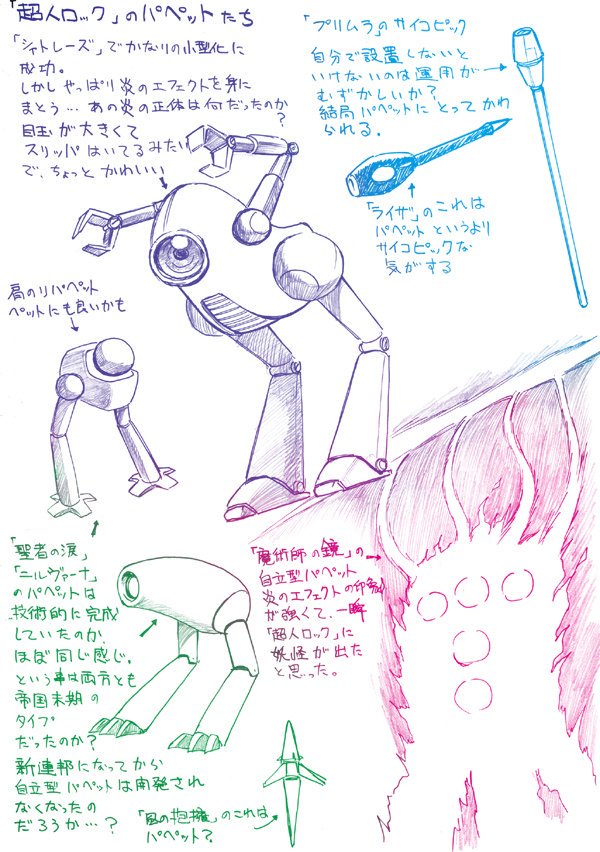 「超人ロック」のパペットたち
「シャトレーズ」でかなりの小型化に
成功。
しかしやっぱり炎のエフェクトを身に
まとう…あの炎の正体は何だったのか?
目玉が大きくて
スリッパはいてるみたい
で、ちょっとかわいい
「プリムラ」のサイコピック
自分で設置しないと
いけないのは運用が
むずかしいか?
結局パペットにとってかわ
られる。
「ライザ」のこれは
パペットというより
サイコピックな
気がする
肩のリパペット
ペットにも良いかも
「聖者の涙」
「ニルヴァーナ」
のパペットは
技術的に完成
していたのか、
ほぼ同じ感じ。
という事は両方とも
帝国末期の
タイプ
だったのか?
新連邦になってから
自立型パペットは開発され
なくなったの
だろうか…?
「魔術師の鏡」の
自立型パペット
炎のエフェクトの印象
が強くて、一瞬
「超人ロック」に
妖怪が出た
と思った。
「風の抱擁」のこれは
パペット?